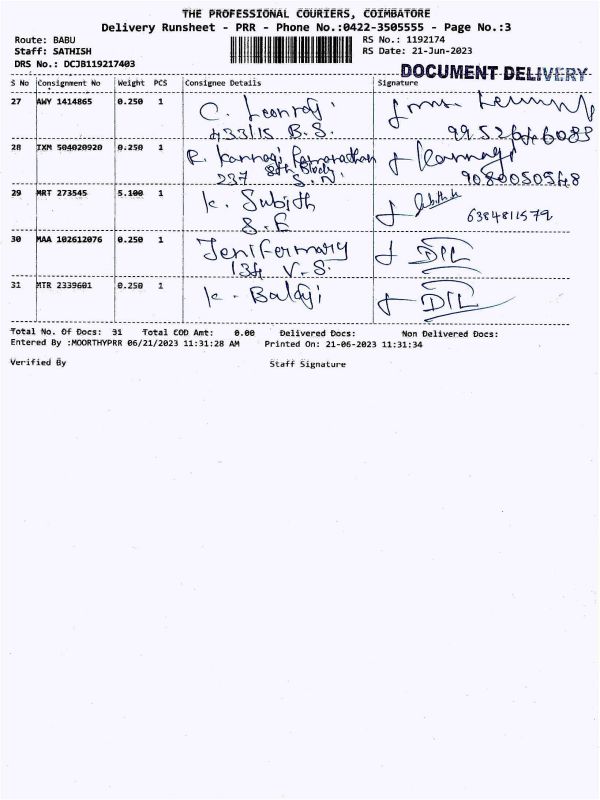 THE PROFESSIONAL COURIERS, COIMBATORE
Delivery Runsheet - PRR - Phone No.:0422-3505555 - Page No.:3
Route: BABU RS No.: 1192174
Staff: SATHISH RS Date: 21-Jun-2023
DRS No.: DCJB119217403
DOCUMENT DELIVERY
S No Consignment No Weight PCS Consignee Details Signature
27 AWY 1414865 0.250 1 C.
433/15 B.S.
28 IXM 504020920 0.250 1 R.
237 8th Block S.N. 9080050548
29 MRT 273545 5.100 1 K. Subith
S.E 6384811579
30 MAA 102612076 0.250 1 Jenifermary DIL
134 V.S.
31 MTR 2339601 0.250 1 K. Balaji DIL
Total No. Of Docs: 31 Total COD Amt: 0.00 Delivered Docs: Non Delivered Docs:
Entered By :MOORTHYPRR 06/21/2023 11:31:28 AM Printed On: 21-06-2023 11:31:34
Verified By Staff Signature